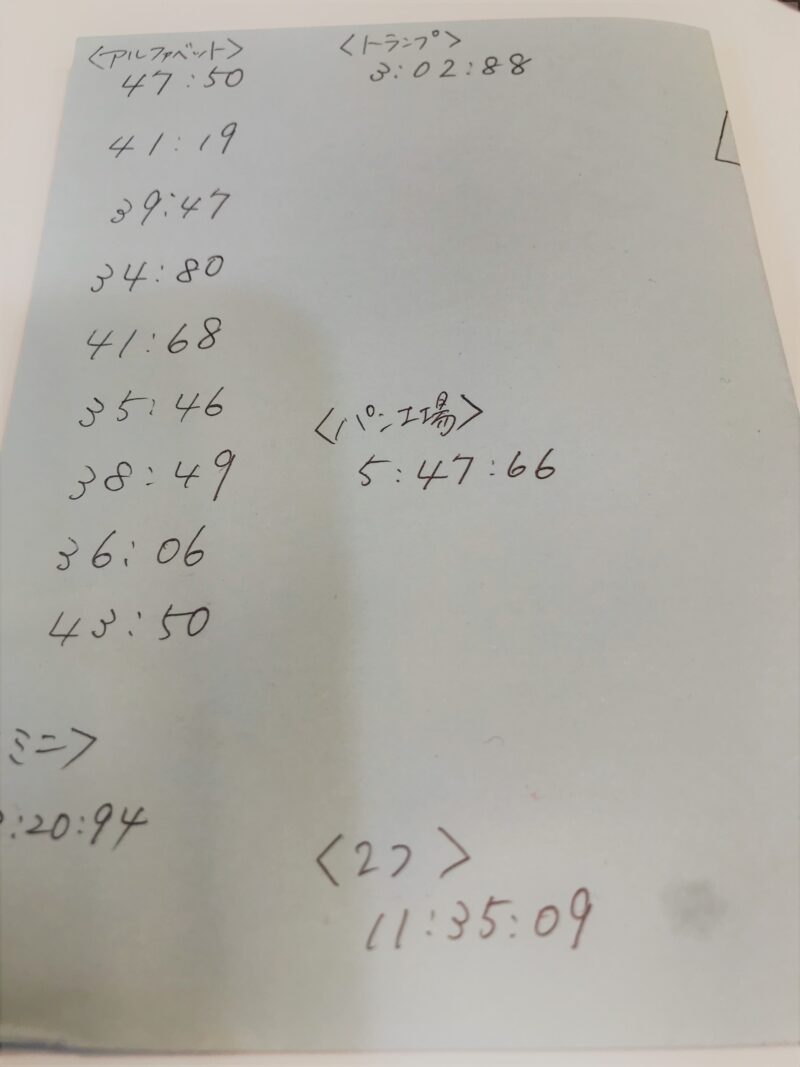 <アルファベット>
47:50
41:19
39:47
34:80
41:68
35:46
38:49
36:06
43:50
<トランプ>
3:02:88
<パン工場>
5:47:66
ミニ>
:20:94
<2つ>
11:35:09